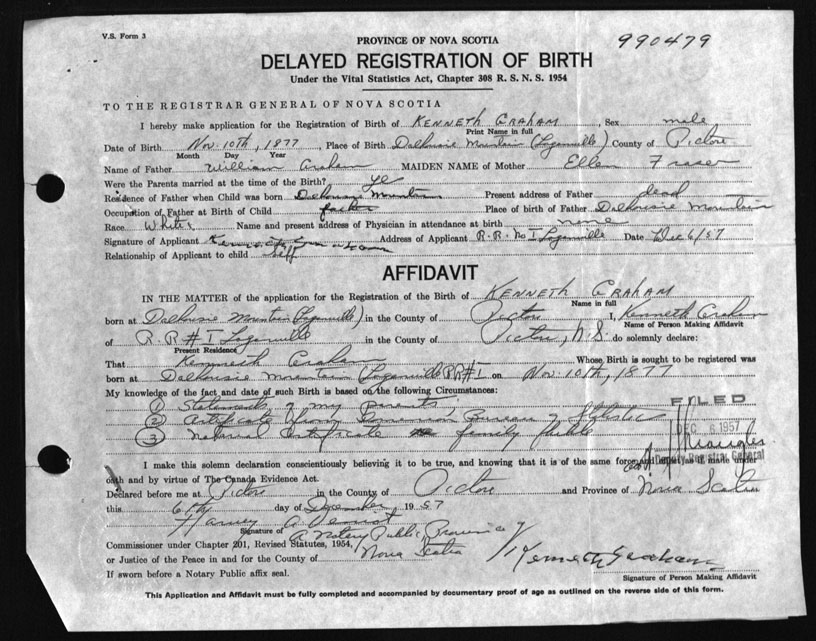 V.S. Form 3
PROVINCE OF NOVA SCOTIA
990479
DELAYED REGISTRATION OF BIRTH
Under the Vital Statistics Act, Chapter 308 R. S. N. S. 1954
TO THE REGISTRAR GENERAL OF NOVA SCOTIA
I hereby make application for the Registration of Birth of KENNETH GRAHAM, Sex male
Print Name in full
Date of Birth Nov. 10th, 1877 Place of Birth Dalhousie Mountain (Loganville) County of Pictou
Month Day Year
Name of Father William Graham MAIDEN NAME of Mother Ellen Fraser
Were the Parents married at the time of the Birth?
Residence of Father when Child was born Dalhousie Mountain Present address of Father dead
Occupation of Father at Birth of Child Place of birth of Father Dalhousie Mountain
Race White Name and present address of Physician in attendance at birth none
Signature of Applicant Kenneth Graham Address of Applicant R.R. No 1 Loganville Date Dec 6/57
Relationship of Applicant to child Self
AFFIDAVIT
IN THE MATTER of the application for the Registration of the Birth of KENNETH GRAHAM
Name in full
born at Dalhousie Mountain (Loganville) in the County of Pictou I, Kenneth Graham
Name of Person Making Affidavit
of R.R # 1 Loganville in the County of Pictou, N.S. do solemnly declare:
Present Residence
That Kenneth Graham Whose Birth is sought to be registered was
born at Dalhousie Mountain (Loganville RR#1 on Nov. 10th, 1877
My knowledge of the fact and date of such Birth is based on the following Circumstances:
FILED
① Statements of my Parents
② Certificate from Dominion Bureau of Statistics
DEC 6 1957
③ Notarial Certificate family Bible
Deputy Registrar General
I make this solemn declaration conscientiously believing it to be true, and knowing that it is of the same force and effect as if made under
oath and by virtue of The Canada Evidence Act.
Declared before me at Pictou in the County of Pictou and Province of Nova Scotia
this 6th day of December, 1957
Harvey A.
Signature of
A Notary Public Province of
Commissioner under Chapter 201, Revised Statutes, 1954,
Nova Scotia
or Justice of the Peace in and for the County of
Kenneth Graham
If sworn before a Notary Public affix seal.
Signature of Person Making Affidavit
This Application and Affidavit must be fully completed and accompanied by documentary proof of age as outlined on the reverse side of this form.